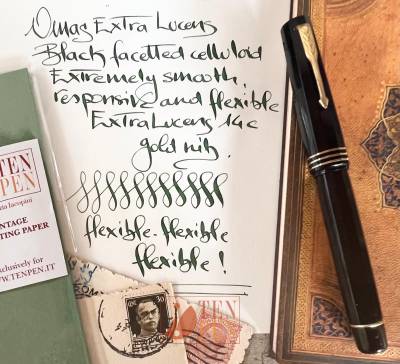 Omas Extra Lucens
Black facetted celluloid
Extremely smooth,
responsive and flexible
Extra Lucens 14c
gold nib.
flexible. flexible
flexible!
TEN
PEN
Iacopini
NTAGE
TING PAPER
clusively for
WW.TENPEN.IT
50
TEN